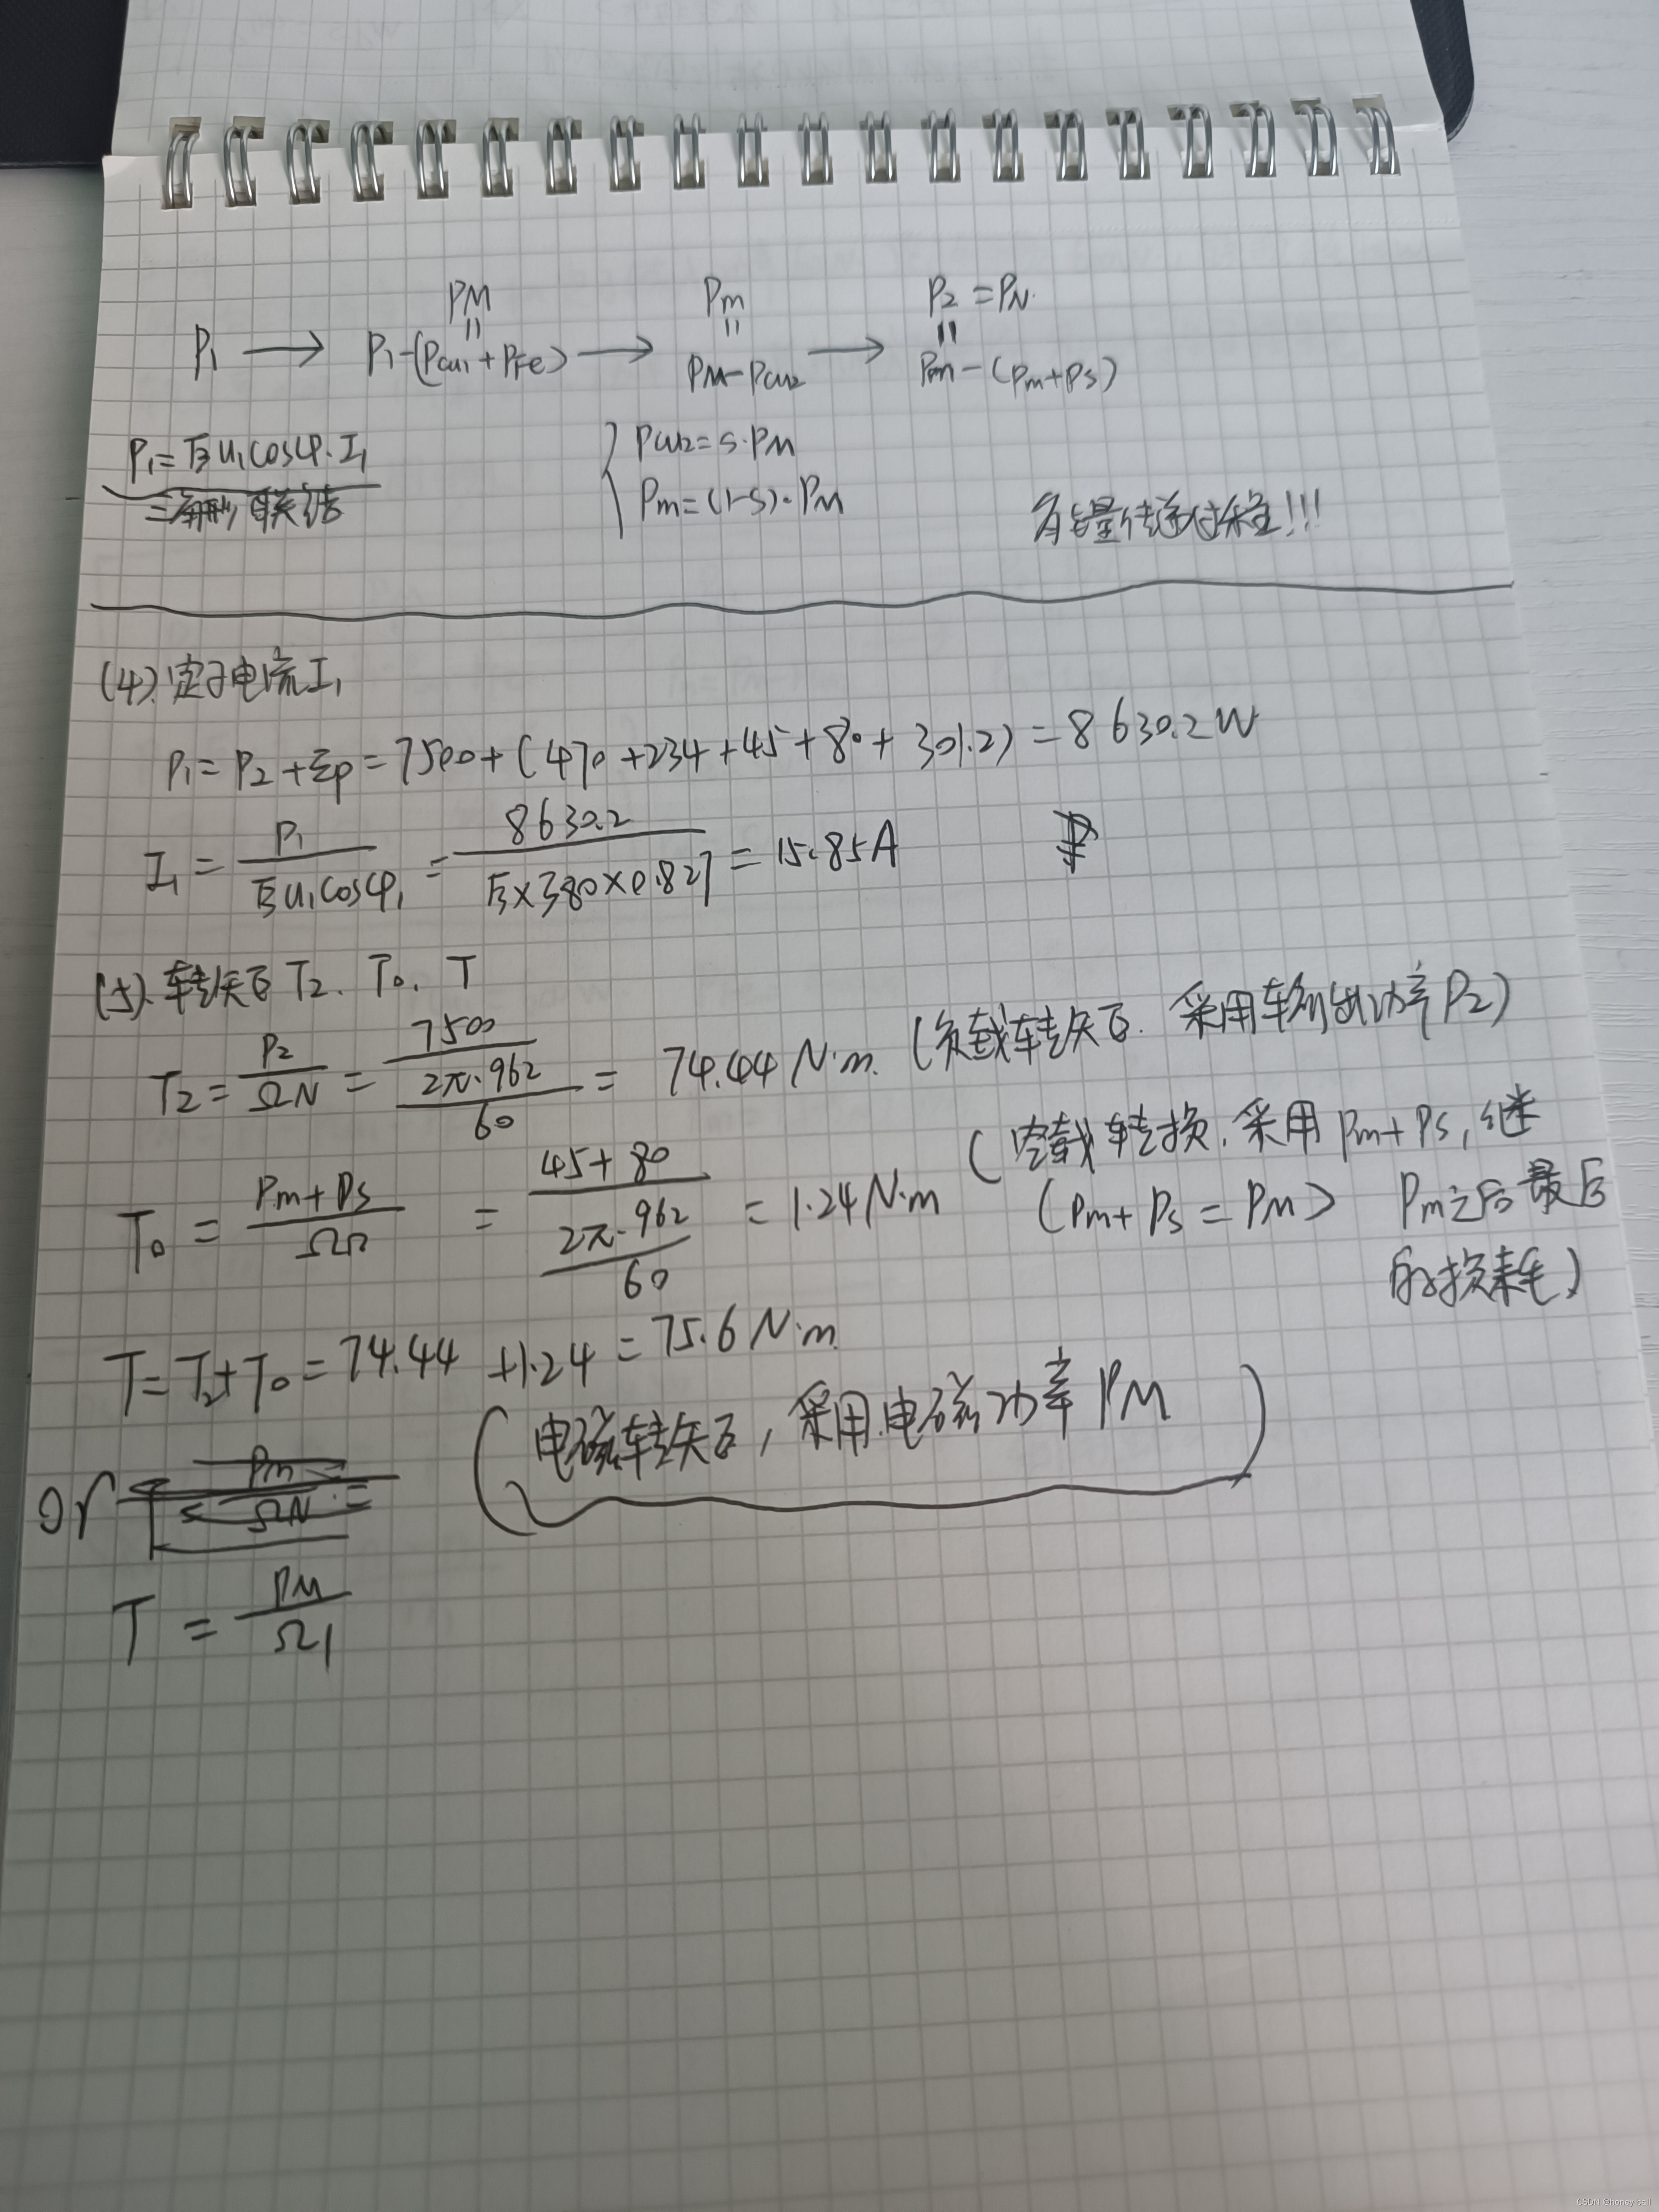 PM Pm P₂ = PN
P₁ → P₁-(Pcu₁ + PFe) → PM-Pcu₂ → Pm-(pm+ps)
P₁=√3U₁cosφ·I₁
Pcu₂=s·PM
Pm=(1-s)·PM
能量传递过程!!!
(4).定子电流I₁
P₁= P₂ +Σp = 7500+(470 +234 +45+80+ 301.2) = 8630.2W
I₁ = P₁/(√3U₁cosφ₁) = 8630.2/(√3×380×0.827) = 15.85A
(5).转矩 T₂. T₀. T
T₂= P₂/ΩN = 7500/(2π·962/60) = 74.44 N·m. (负载转矩. 采用输出功率P₂)
T₀ = (Pm+Ps)/ΩN = (45+80)/(2π·962/60) = 1.24N·m (空载转损. 采用pm+ps, 继
(Pm+ Ps = PM) Pm之后最后
的损耗)
T=T₂+T₀ = 74.44 +1.24 = 75.6 N·m
or
(电磁转矩, 采用电磁功率PM)
T = PM/Ω₁
CSDN @honey ball